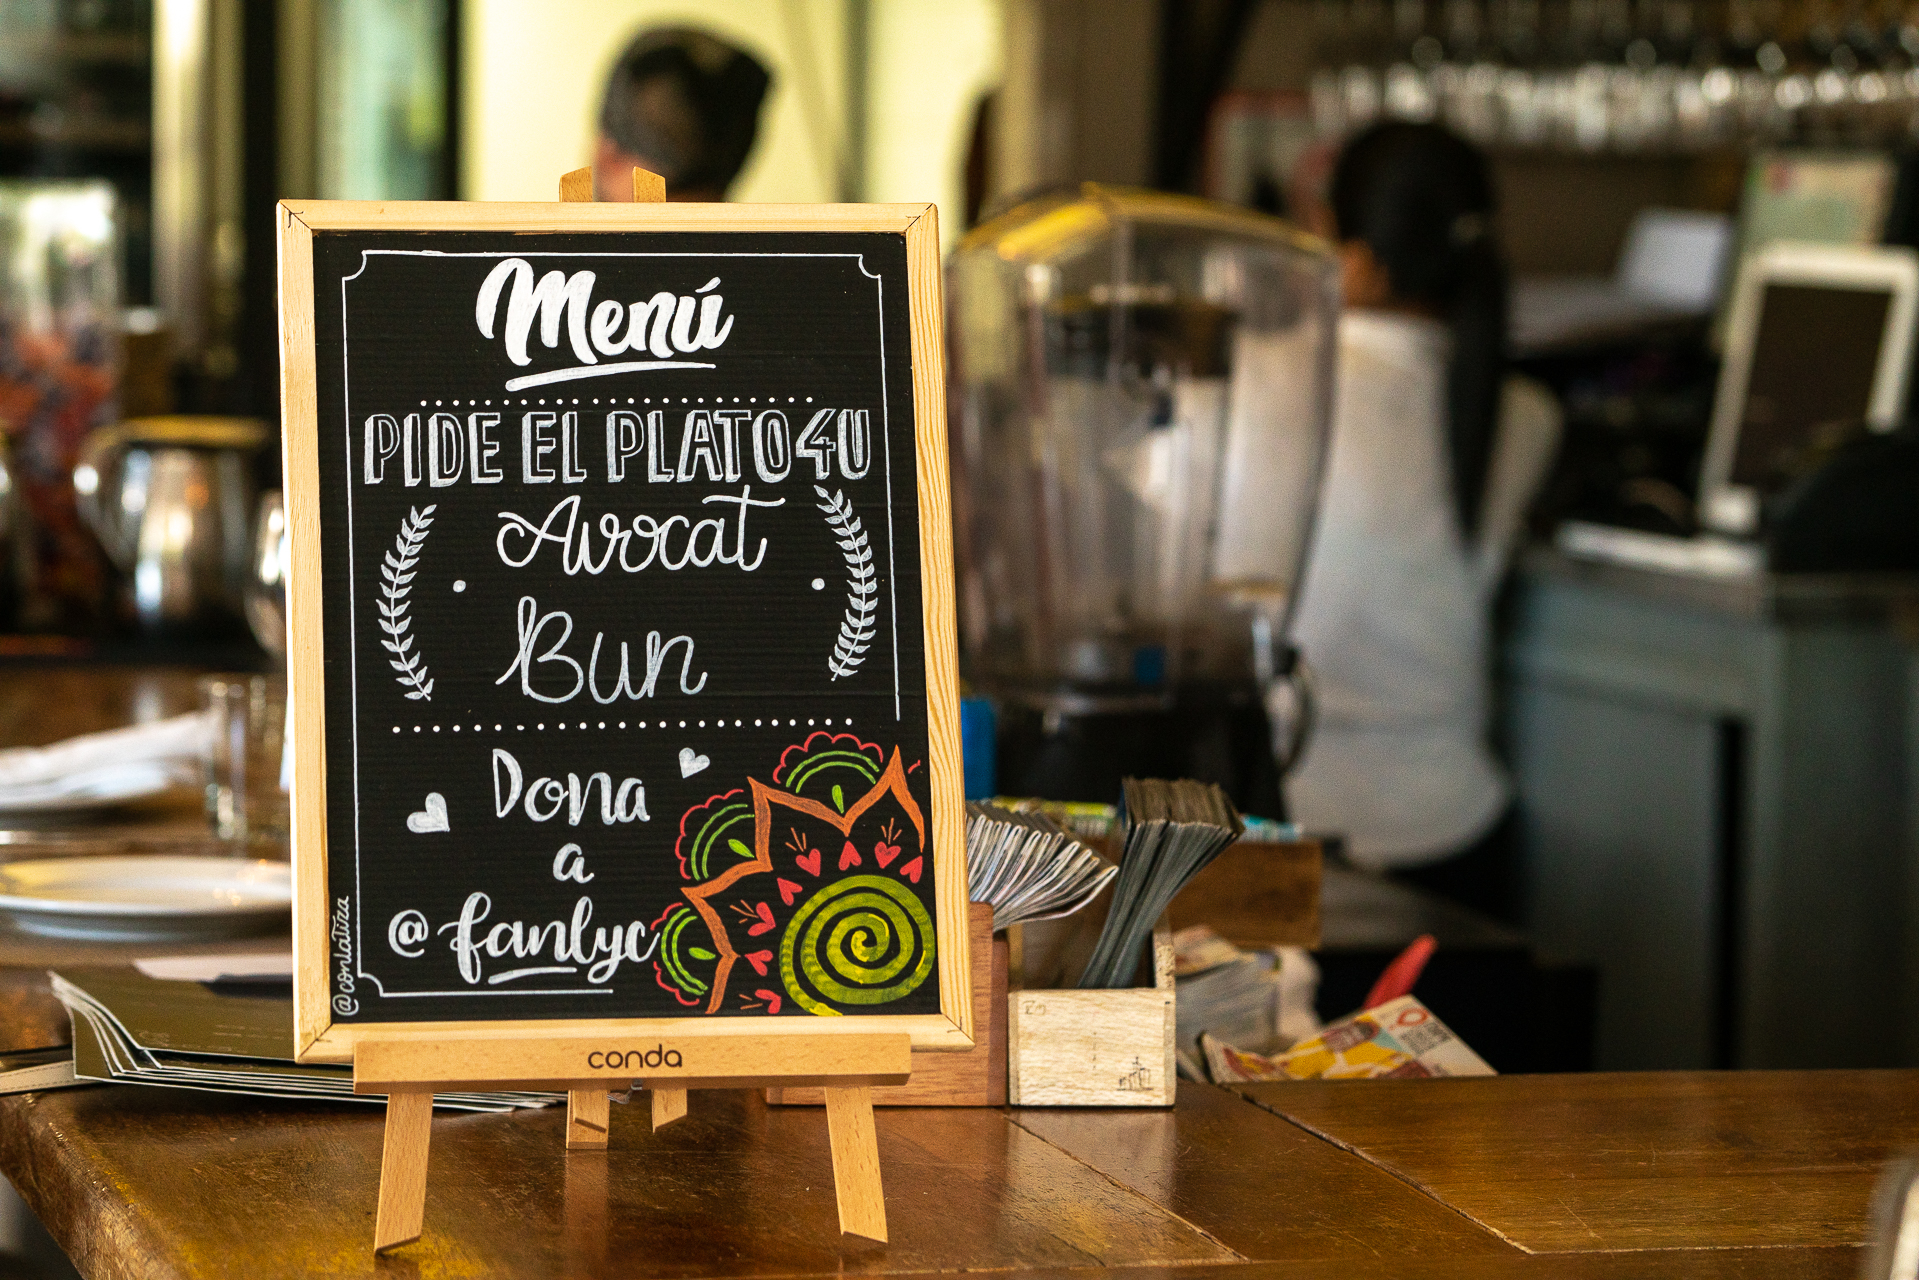 Menú
PIDE EL PLATO4U
Avocat
Bun
Dona
a
@fanlyc
@conlatiza
conda